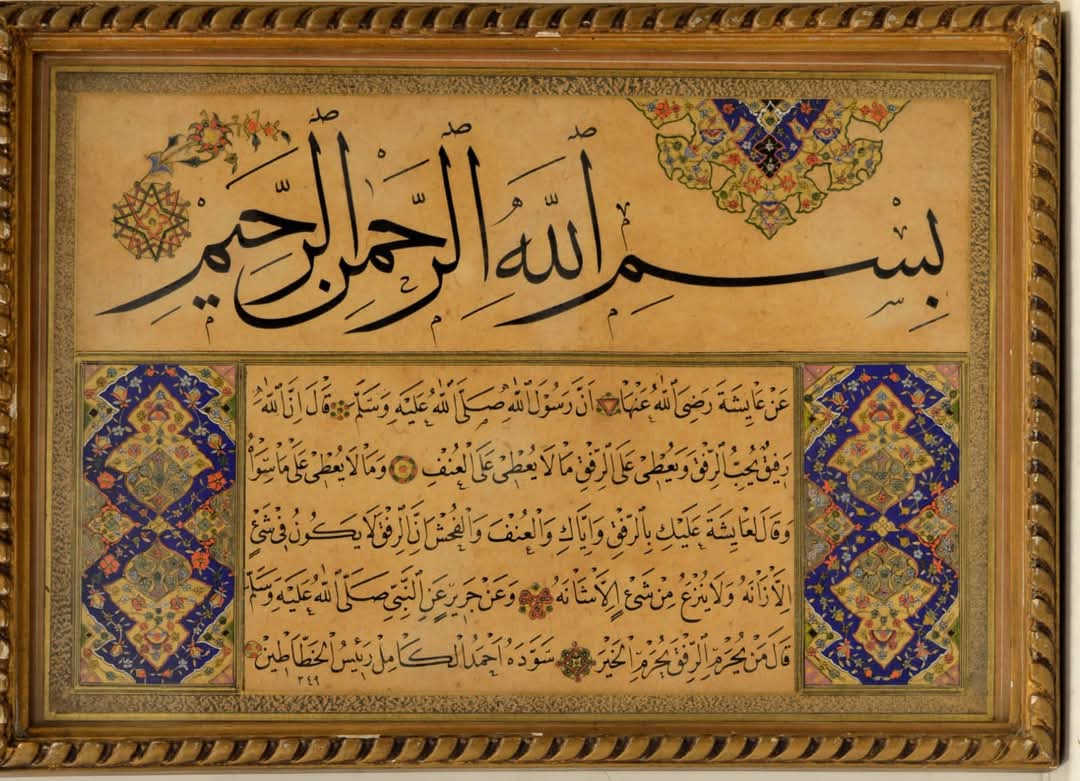 بِسْمِ اللّٰهِ الرَّحْمٰنِ الرَّحِيمِ
عَنْ عَايِشَةَ رَضِىَ اللّٰهُ عَنْهَا اَنَّ رَسُولَ اللّٰهِ صَلَّى اللّٰهُ عَلَيْهِ وَسَلَّمَ قَالَ اِنَّ اللّٰهَ
رَفِيقٌ يُحِبُّ الرِّفْقَ وَيُعْطِى عَلَى الرِّفْقِ مَا لَا يُعْطِى عَلَى الْعُنْفِ وَمَا لَا يُعْطِى عَلَى مَا سِوَاهُ
وَقَالَ لِعَايِشَةَ عَلَيْكِ بِالرِّفْقِ وَاِيَّاكِ وَالْعُنْفَ وَالْفُحْشَ اِنَّ الرِّفْقَ لَا يَكُونُ فِى شَىْءٍ
اِلَّا زَانَهُ وَلَا يُنْزَعُ مِنْ شَىْءٍ اِلَّا شَانَهُ وَعَنْ جَرِيرٍ عَنِ النَّبِىِّ صَلَّى اللّٰهُ عَلَيْهِ وَسَلَّمَ
قَالَ مَنْ يُحْرَمِ الرِّفْقَ يُحْرَمِ الْخَيْرَ سَوَّدَهُ اَحْمَدُ الْكَامِلُ رَئِيسُ الْخَطَّاطِينَ
٣٤٩